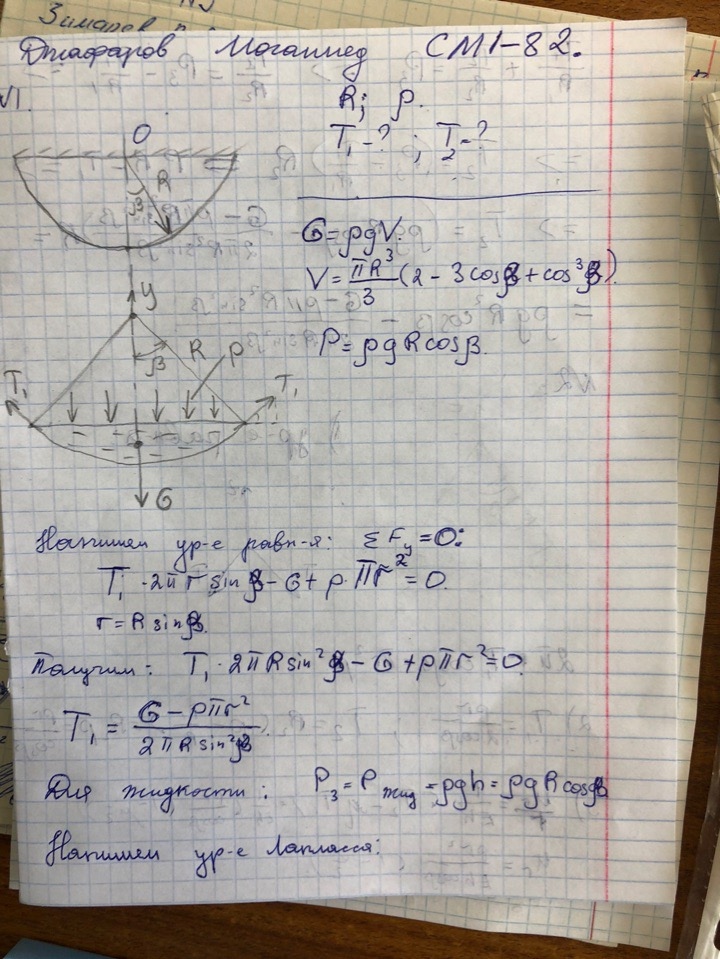 Джафаров Могаммед СМ1-82.
√1.
R; ρ.
T₁-? ; T₂-?
O
R
β
G=ρgV.
V=πR³/3 (2-3cosβ+cos³β).
P=ρgRcosβ.
y
β
R
P
T₁
T₁
G
Напишем ур-е равн-я: ΣFy=0:
T₁·2πr sinβ-G+p·πr²=0.
r=R sinβ.
Получим: T₁·2πR sin²β-G+pπr²=0.
T₁=(G-pπr²)/(2πR sin²β).
Для жидкости: P₃=Pжид=ρgh=ρgRcosβ
Напишем ур-е Лапласа: